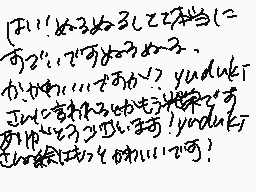 はい!ぬるぬるしてて本当に
すごいですぬるぬる、
か、かわいいですか!?yuduki
さんに言われるとかもう光栄です
ありがとうございます!yuduki
さんの絵はもっとかわいいです!